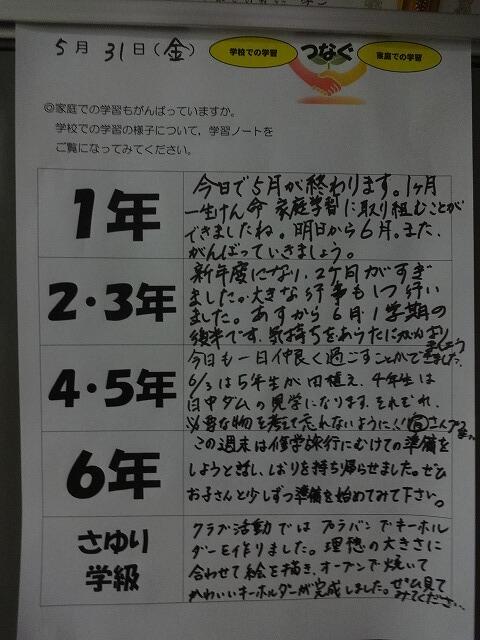 5月31日(金)
学校での学習
つなぐ
家庭での学習
◎家庭での学習もがんばっていますか。
学校での学習の様子について，学習ノートを
ご覧になってみてください。
1年
今日で5月が終わります。1ヶ月
一生けん命 家庭学習に取り組むことが
できましたね。明日から6月。また、
がんばっていきましょう。
2・3年
新年度になり、2ヶ月がすぎ
ました。大きな行事も1つ行い
ました。あすから6月・1学期の
後半です。気持ちをあらたに
ましょう
4・5年
今日も一日仲良く過ごすことができました。
6/3は5年生が田植え、4年生は
田中ダムの見学になります。それぞれ、
必要な物を考えて忘れないように!!
6年
この週末は修学旅行にむけての準備を
しようと話し、しおりを持ち帰らせました。ぜひ
お子さんと少しずつ準備を始めてみて下さい。
さゆり
学級
クラブ活動ではプラバンでキーホル
ダーを作りました。理想の大きさに
合わせて絵を描き、オーブンで焼いて
かわいいキーホルダーが完成しました。ぜひ見て
みてください…